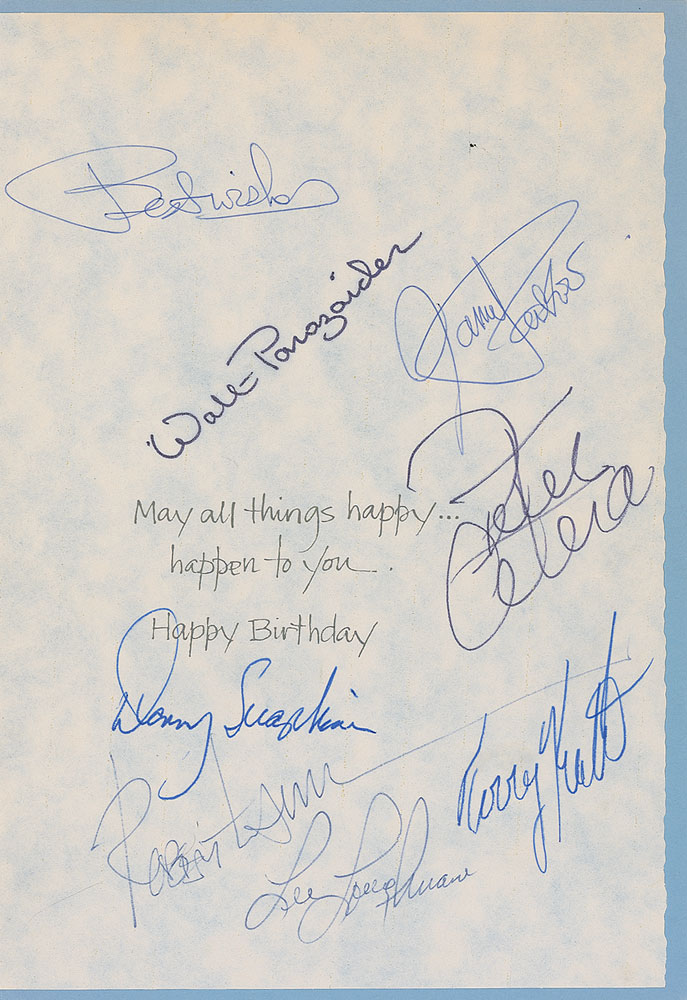 Best wishes
Walt Parazaider
James Pankow
Peter
Cetera
May all things happy...
happen to you.
Happy Birthday
Danny Seraphine
Terry Kath
Robert Lamm
Lee Loughnane